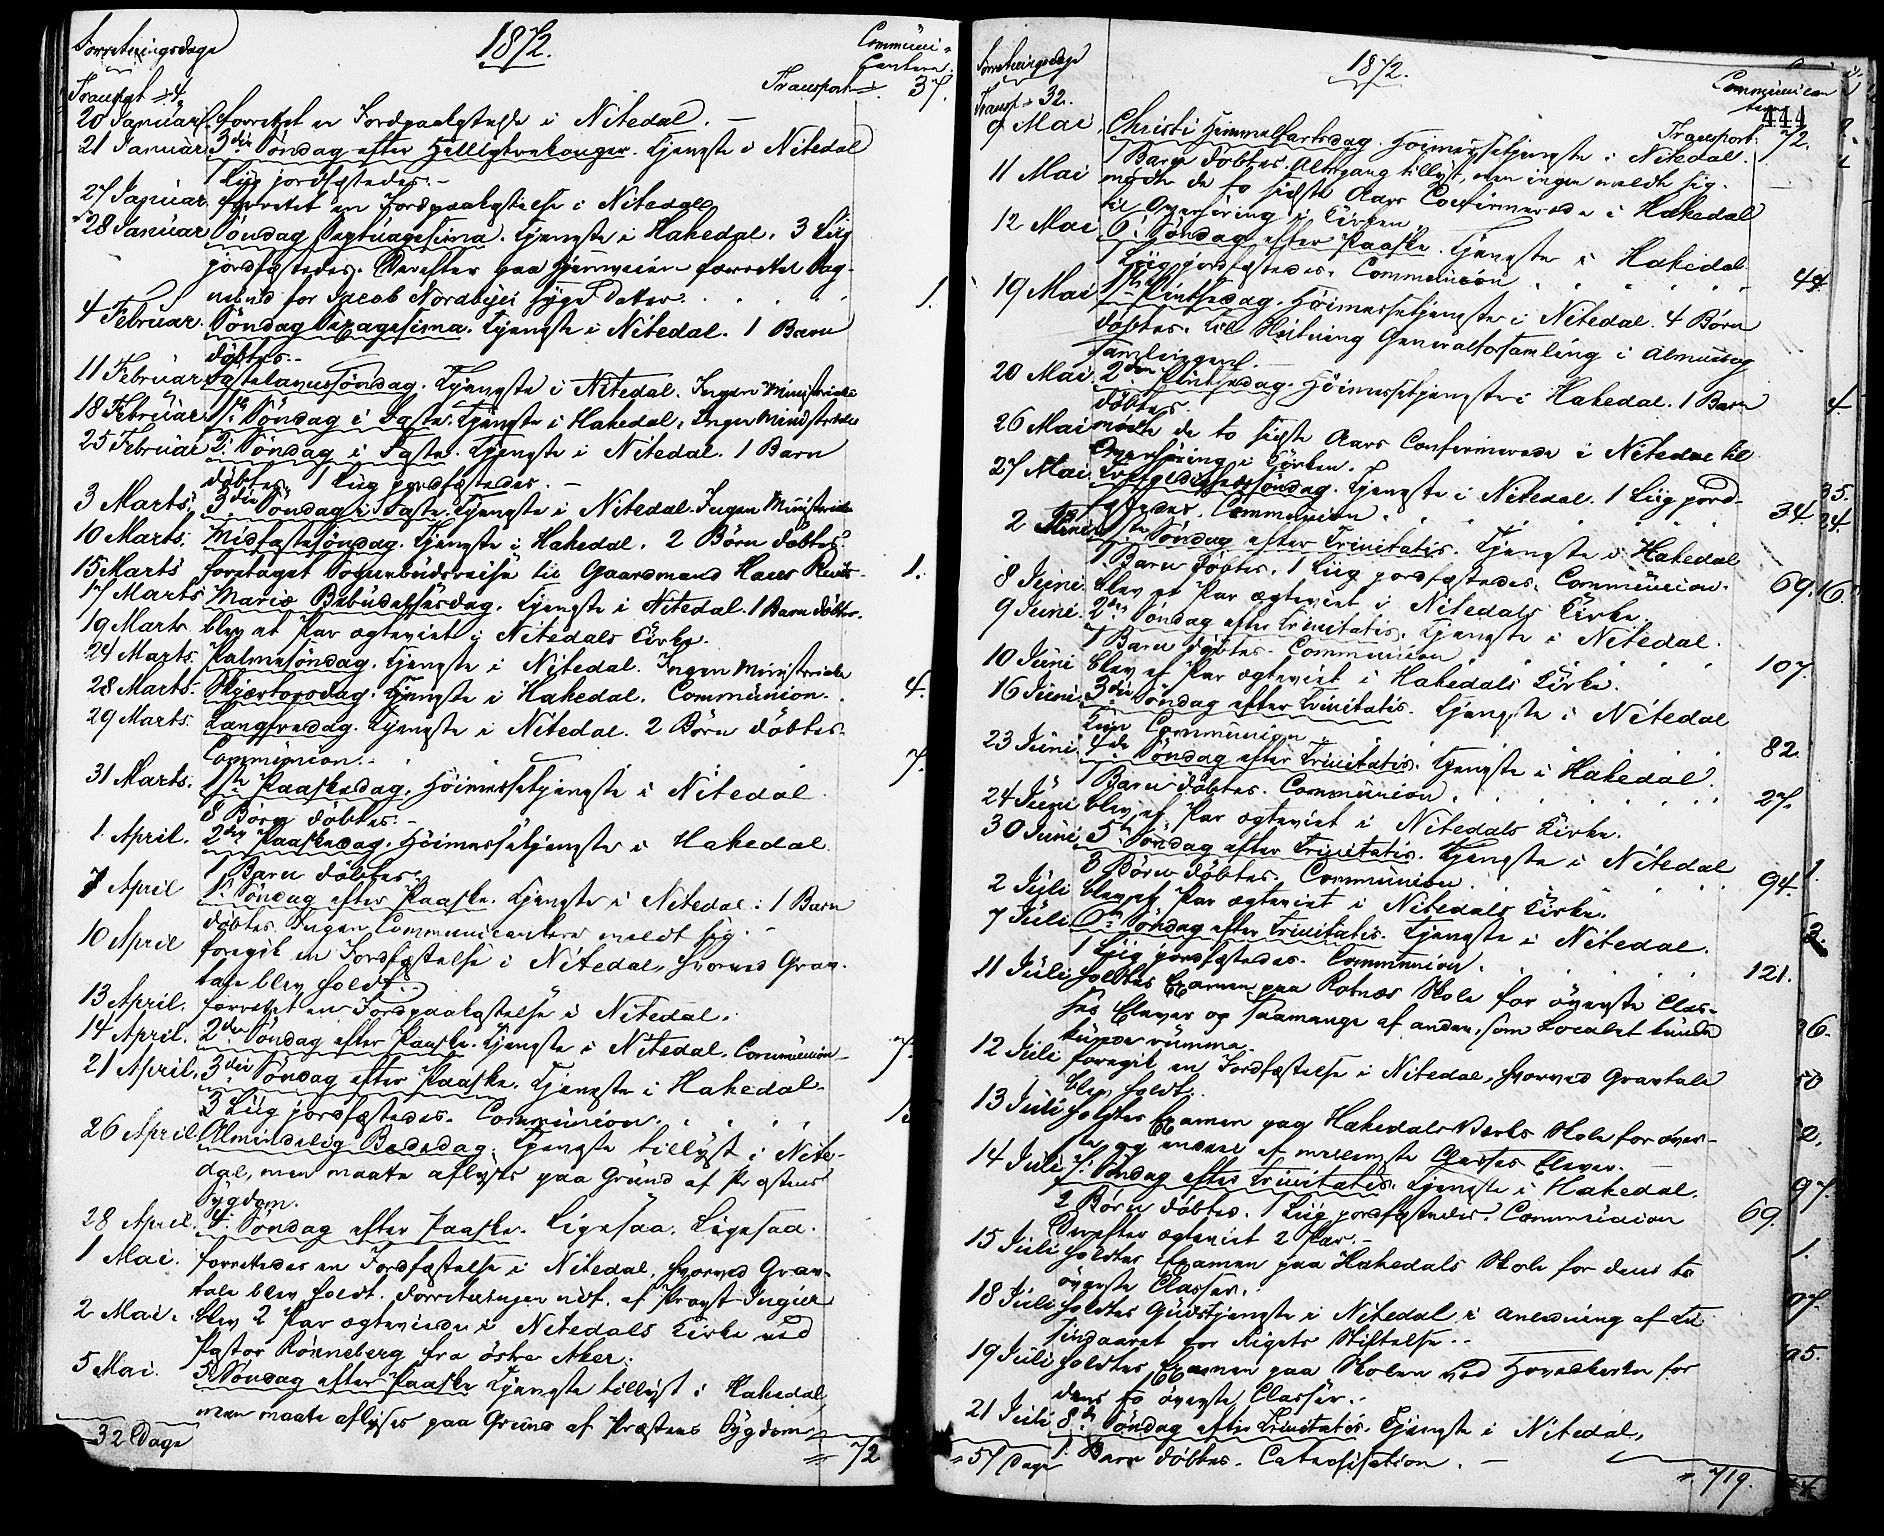 Forretningsdage
1872.
Communi-
canter.
Transport 4.
Transport 37.
20 Januar. forrettet en Jordpaakastelse i Nitedal. —
21 Januar 3die Søndag efter Helligtrekonger. Tjeneste i Nitedal
1 Liig jordfæstedes. —
27 Januar forrettet en Jordpaakastelse i Nitedal
28 Januar Søndag Septuagesima. Tjeneste i Hakedal. 3 Liig
jordfæstedes. Derefter paa Hjemveien forrettet Sog-
nebud for Jacob Nordbyes syge Datter. 1.
4 Februar. Søndag Sexagesima. Tjeneste i Nitedal. 1 Barn
døbtes. —
11 Februar Fastelavnssøndag. Tjeneste i Nitedal. Ingen Ministerialia
18 Februar 1ste Søndag i Faste. Tjeneste i Hakedal. Ingen Ministerialia
25 Februar 2. Søndag i Faste. Tjeneste i Nitedal. 1 Barn
døbtes. 1 Liig jordfæstedes. —
3 Marts. 3die Søndag i Faste. Tjeneste i Nitedal. Ingen Ministerialia
10 Marts. Midfastesøndag. Tjeneste i Hakedal. 2 Børn døbtes.
15 Marts foretaget Sognebudsreise til Gaardmand Hans 1.
17 Marts Mariæ Bebudelsesdag. Tjeneste i Nitedal. 1 Barn døbtes.
19 Marts blev et Par ægteviet i Nitedals Kirke.
24 Marts. Palmesøndag. Tjeneste i Nitedal. Ingen Ministerialia
28 Marts. Skjærtorsdag. Tjeneste i Hakedal. Communion. 4.
29 Marts. Langfredag. Tjeneste i Nitedal. 2 Børn døbtes.
Communion. — 7.
31 Marts. 1ste Paaskedag. Høimessetjeneste i Nitedal
8 Børn døbtes. —
1. April. 2den Paaskedag. Høimessetjeneste i Hakedal.
1 Barn døbtes.
7 April 1. Søndag efter Paaske. Tjeneste i Nitedal. 1 Barn
døbtes. Ingen Communicantere meldt sig. —
10 April foregik en Jordfæstelse i Nitedal, hvorved Grav-
tale blev holdt.
13 April. forrettet en Jordpaakastelse i Nitedal.
14 April. 2den Søndag efter Paaske. Tjeneste i Nitedal. Communion 7.
21 April. 3die Søndag efter Paaske. Tjeneste i Hakedal.
3 Liig jordfæstedes. Communion.
26 April. Almindelig Bededag. Tjeneste tillyst i Nite-
dal, men maate aflyses paa Grund af Præstens
Sygdom.
28 April. 4. Søndag efter Paaske. Ligesaa. Ligesaa.
1 Mai. forrettedes en Jordfæstelse i Nitedal, hvorved Grav-
tale blev holdt. Forretningen udf. af Provst Ingier
2 Mai. blev 2 Par ægteviede i Nitedals Kirke ved
Pastor Rønneberg fra østre Aker.
5 Mai. 5. Søndag efter Paaske Tjeneste tillyst i Hakedal,
men maate aflyses paa Grund af Præstens Sygdom
32 Dage
72
Forretningsdage
1872.
Communican
ter
444
Transp. 32.
Transport 72.
9 Mai Christi Himmelfartsdag. Høimessetjeneste i Nitedal.
1 Barn døbtes. Altergang tillyst, men ingen meldt sig.
11 Mai mødte de to sidste Aars Confirmerede i Hakedal
til Overhøring i Kirken.
12 Mai 6. Søndag efter Paaske. Tjeneste i Hakedal
1 Liig jordfæstedes. Communion 44.
19 Mai 1ste Pintsedag. Høimessetjeneste i Nitedal. 4 Børn
døbtes. Til Slutning Generalforsamling i Almuebog
samlingen. —
20 Mai. 2den Pintsedag. Høimessetjeneste i Hakedal. 1 Barn
døbtes. 4
26 Mai mødte de to sidste Aars Confirmerede i Nitedal til
Overhøring i Kirken.
27 Mai. Trefoldighedssøndag. Tjeneste i Nitedal. 1 Liig jord-
fæstedes. Communion 34.
35.
24.
2 Juni 1ste Søndag efter Trinitatis. Tjeneste i Hakedal
1 Barn døbtes. 1 Liig jordfæstedes. Communion. 69.
8 Juni. blev et Par ægteviet i Nitedals Kirke.
9 Juni. 2den Søndag efter Trinitatis. Tjeneste i Nitedal.
1 Barn døbtes. Communion 107.
10 Juni blev et Par ægteviet i Hakedals Kirke.
16 Juni 3die Søndag efter Trinitatis. Tjeneste i Nitedal
Kun Communion 82.
23 Juni 4de Søndag efter Trinitatis. Tjeneste i Hakedal.
1 Barn døbtes. Communion. 27.
24 Juni blev et Par ægteviet i Nitedals Kirke.
30 Juni 5. Søndag efter Trinitatis. Tjeneste i Nitedal
3 Børn døbtes. Communion. 94.
1.
2 Juli blev et Par ægteviet i Nitedals Kirke.
7 Juli 6te Søndag efter Trinitatis. Tjeneste i Nitedal.
1 Liig jordfæstedes. Communion. 121.
11 Juli holdtes Examen paa Rotnes Skole for øverste Clas-
ses Elever og saamange af anden, som Localet kunde
kunde rumme. 36.
12 Juli foregik en Jordfæstelse i Nitedal, hvorved Gravtale
blev holdt.
13 Juli holdtes Examen paa Hakedals Verks Skole for øver-
ste og endeel af mellemste Classes Elever.
14 Juli 7. Søndag efter Trinitatis. Tjeneste i Hakedal.
2 Børn døbtes. 1 Liig jordfæstedes. Communion 69.
Derefter ægteviet 2 Par. —
15 Juli holdtes Examen paa Hakedals Skole for dens to
øverste Classer.
18 Juli holdtes Gudstjeneste i Nitedal i Anledning af Tu
sindaaret for Rigets Stiftelse. —
19 Juli holdtes Examen paa Skolen ved Hovedkirken for
dens to øverste Classer.
21 Juli 8de Søndag efter Trinitatis. Tjeneste i Nitedal,
1. Barn døbtes. Catechisation. —
57 Dage
719.